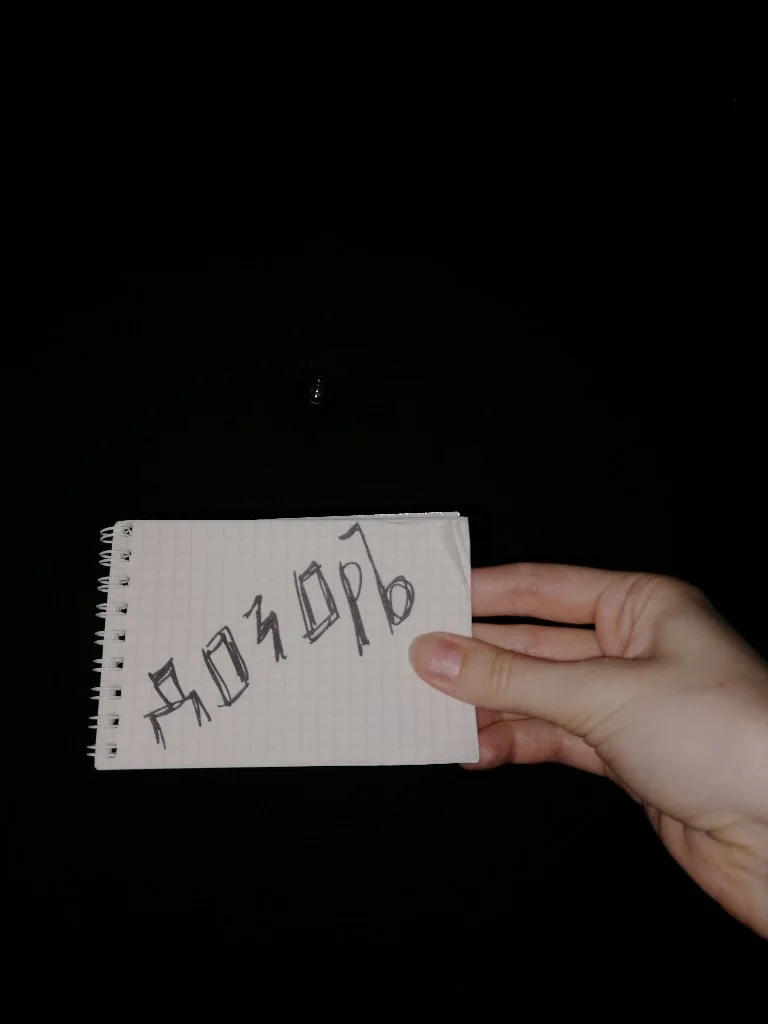 дозоръ